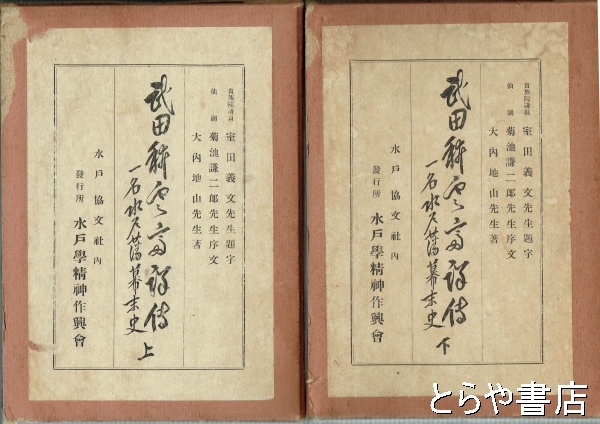 貴族院議員 室田義文先生題字
仙湖 菊池謙二郎先生序文
大內地山先生著
武田耕雲斎詳傳
一名水戸藩幕末史
上
水戶協文社內
發行所 水戶學精神作興會
貴族院議員 室田義文先生題字
仙湖 菊池謙二郎先生序文
大內地山先生著
武田耕雲斎詳傳
一名水戸藩幕末史
下
水戶協文社內
發行所 水戶學精神作興會
とらや書店